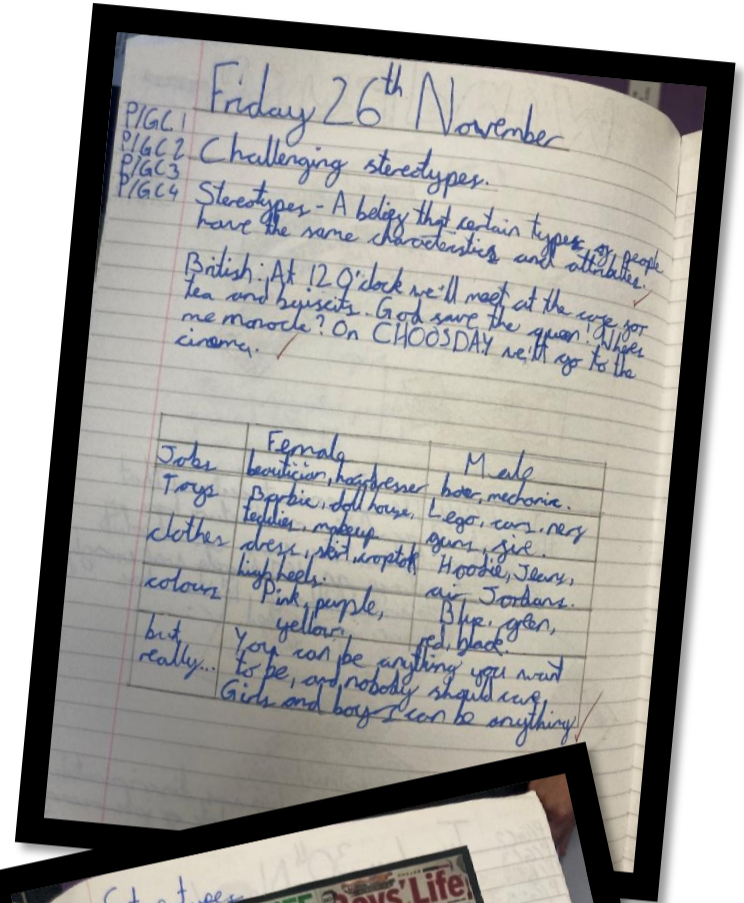 Friday 26th November
P/GC1
P/GC2
P/GC3
P/GC4
Challenging stereotypes.
Stereotypes - A belief that certain types of people
have the same characteristics and attributes.
British: At 12 O'clock we'll meet at the cafe for
tea and biscuits. God save the queen! Wheres
me monocle? On CHOOSDAY we'll go to the
cinema.
Female Male
Jobs beautician, hairdresser boxer, mechanic.
Toys Barbie, doll house, Lego, cars, nerf
teddies, makeup guns,
clothes dress, skirt, croptop Hoodie, Jeans,
high heels. air Jordans.
colours Pink, purple, Blue, green,
yellow. red, black.
but You can be anything you want
really... to be, and nobody should care
Girls and boys can be anything
Boys' Life